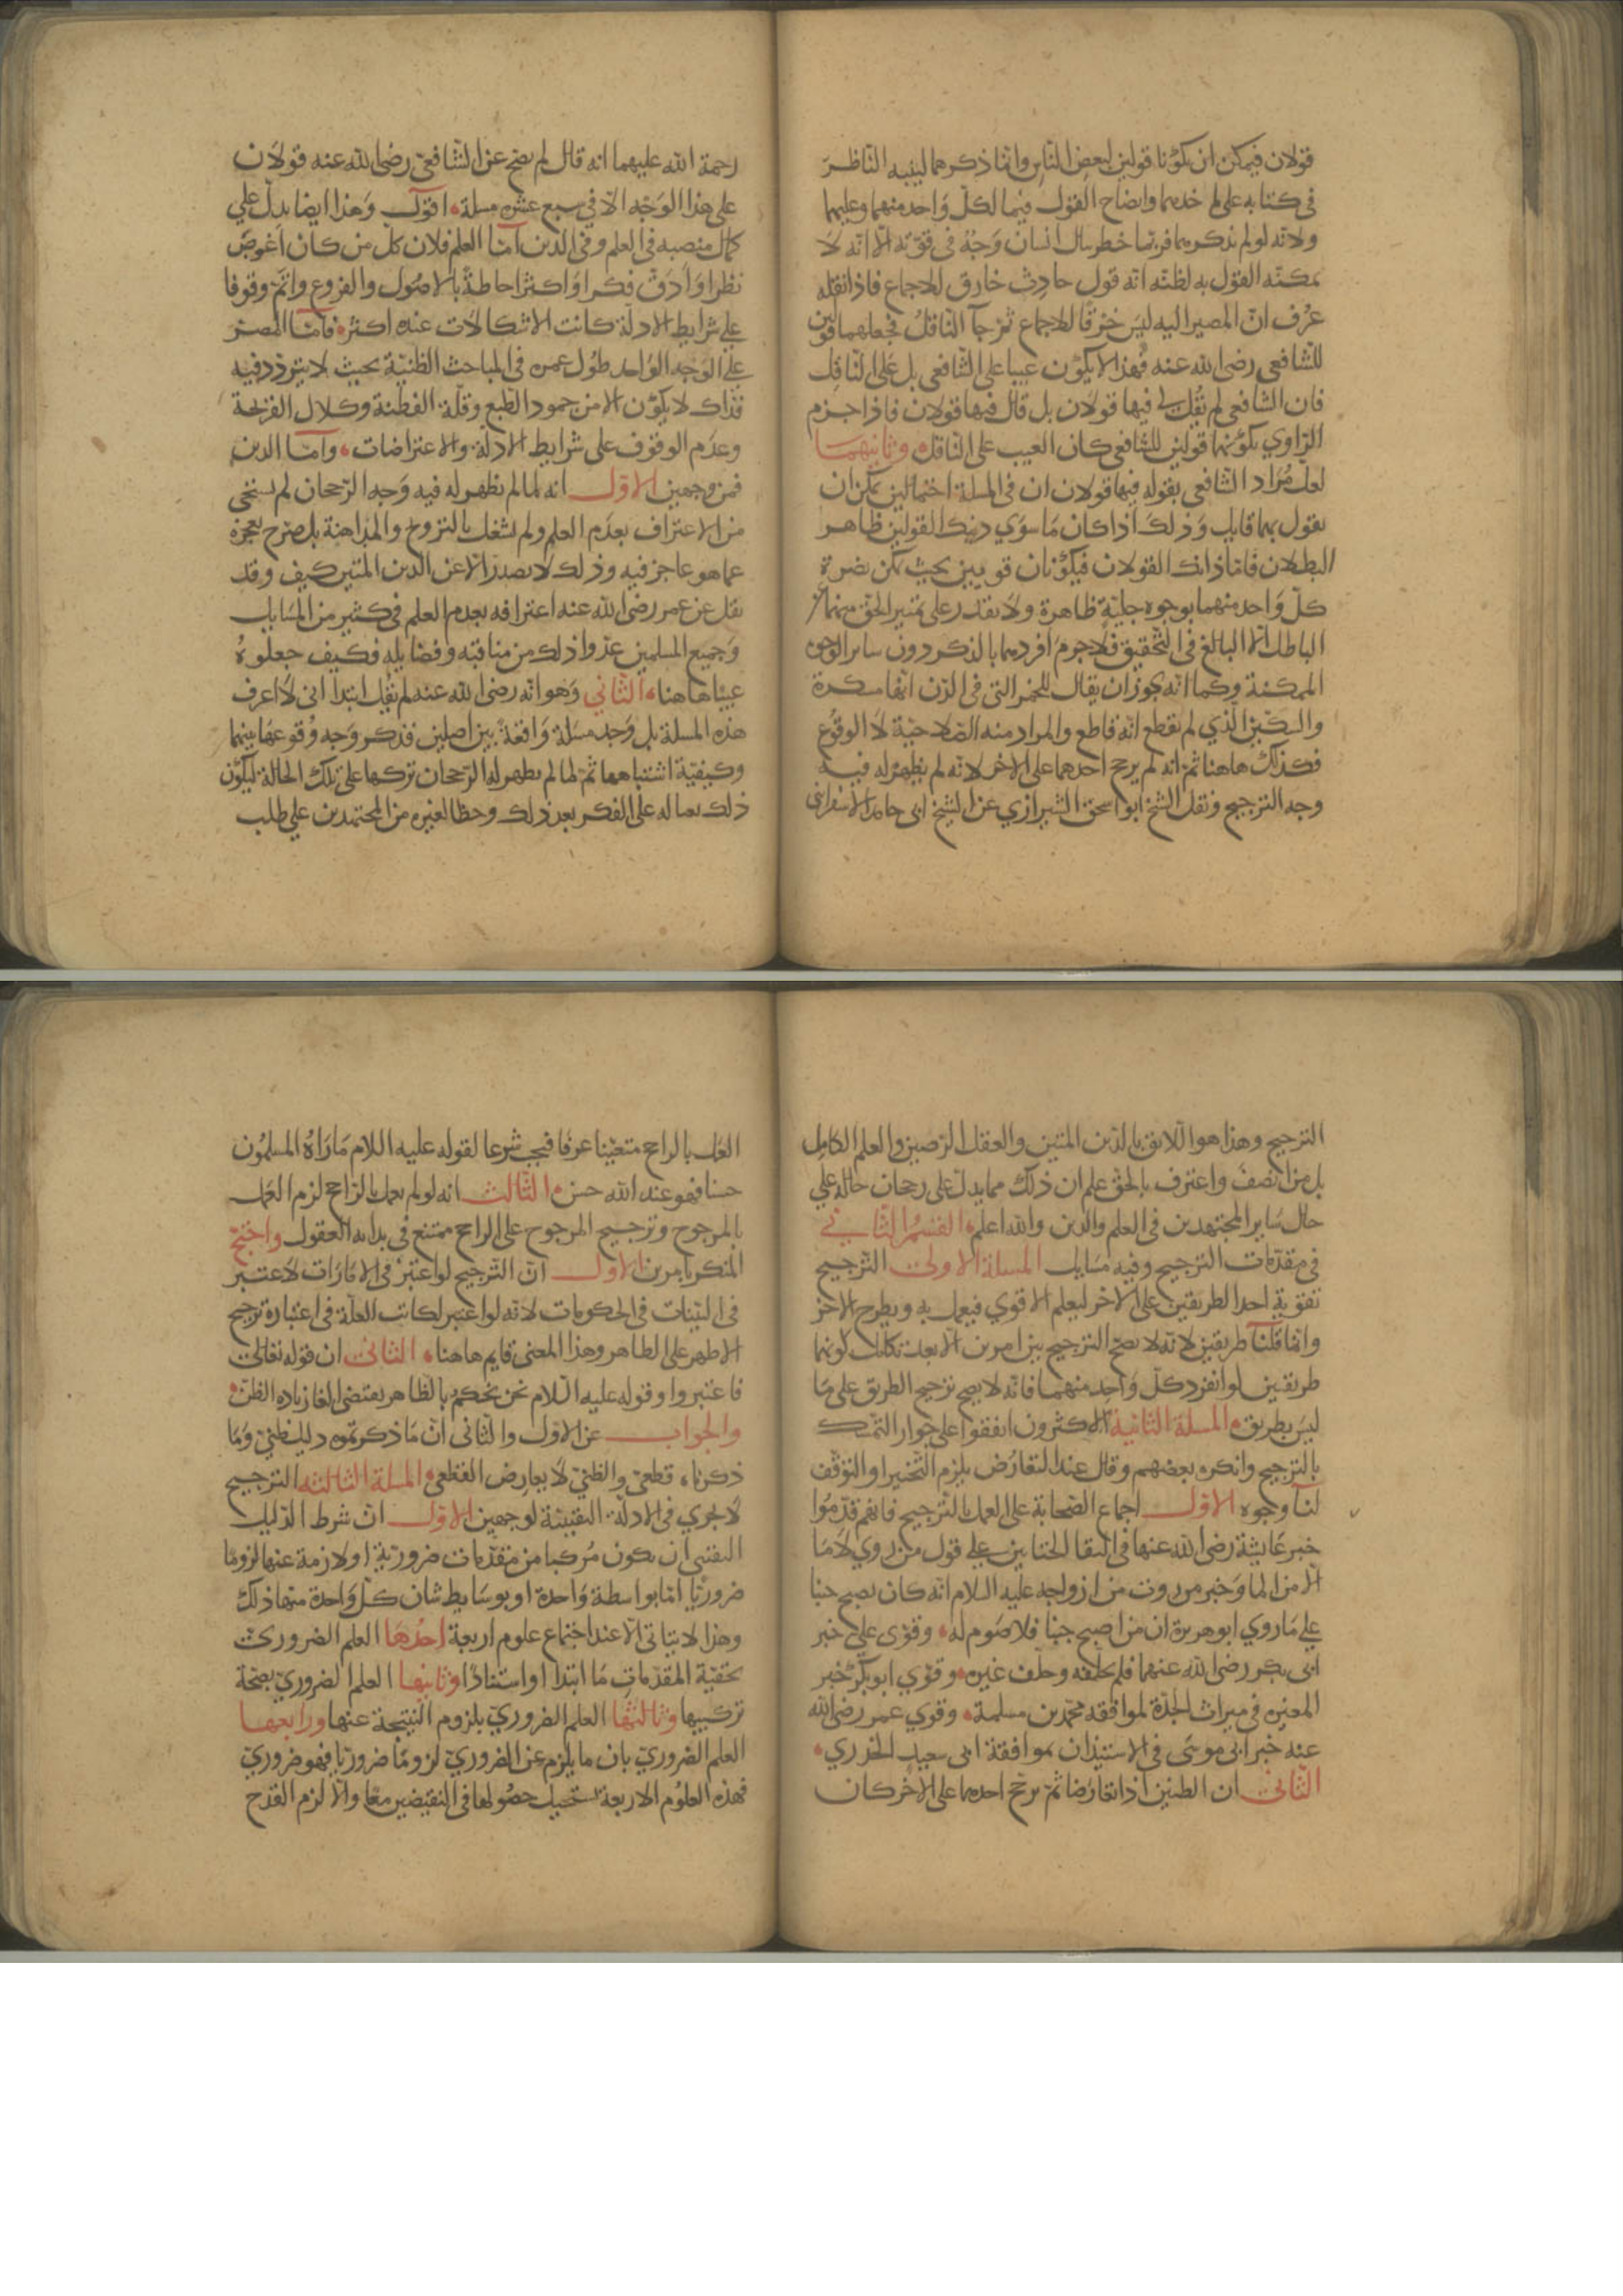 قولان فيمكن ان يكونا قولين لبعض الناس وانما ذكرهما لينبه الناظر
في كتابه على ماخذهما وايضاح القول فيما لكل واحد منهما وعليهما
ولانه لو لم يذكرهما فربما خطر ببال انسان وجه في قوته الا انه لا
يمكنه القول به لظنه انه قول حادث خارق للاجماع فاذا نقله
عرف ان المصير اليه ليس خرقا للاجماع ثم جآ الناقل فجعلهما قولين
للشافعي رضي الله عنه فهذا لا يكون عيبا على الشافعي بل على الناقل
فان الشافعي لم يقل لي فيها قولان بل قال فيها قولان فاذا جزم
الراوي بكونهما قولين للشافعي كان العيب على الناقل وثانيهما
لعل مراد الشافعي بقوله فيها قولان ان في المسلة احتمالين يمكن ان
يقول بهما قايل وذلك اذا كان ما سوي ذينك القولين ظاهر
البطلان فاما ذانك القولان فيكونان قويين بحيث يمكن نصرة
كل واحد منهما بوجوه جلية ظاهرة ولا يقدر على تمييز الحق منهما عن
الباطل الا البالغ في التحقيق فلا جرم افردهما بالذكر دون ساير الوجوه
الممكنة وكما انه يجوز ان يقال للخمر التي في الدن انها مسكرة
والسكين الذي لم يقطع انه قاطع والمراد منه الصلاحية لا الوقوع
فكذلك هاهنا ثم انه لم يرجح احدهما على الاخر لانه لم يظهر له فيه
وجه الترجيح ونقل الشيخ ابو اسحق الشيرازي عن الشيخ ابى حامد الاسفراينى
رحمة الله عليهما انه قال لم يصح عن الشافعي رضي الله عنه قولان
على هذا الوجه الا في سبع عشره مسلة اقول وهذا ايضا يدل علي
كمال منصبه في العلم وفي الدين اما العلم فلان كل من كان اغوص
نظرا وادق فكرا واكثر احاطة بالاصول والفروع واتم وقوفا
علي شرايط الادلة كانت الاشكالات عنده اكثر فاما المصر
علي الوجه الواحد طول عمره في المباحث الظنية بحيث لا يتردد فيه
فذاك لا يكون الا من جمود الطبع وقلة الفطنة وكلال القريحة
وعدم الوقوف على شرايط الادلة والاعتراضات واما الدين
فمن وجهين الاول انه لما لم يظهر له فيه وجه الرجحان لم يستحى
من الاعتراف بعدم العلم ولم يشتغل بالترويج والمداهنة بل صرح بعجزه
عما هو عاجز فيه وذلك لا يصدر الا عن الدين المتين كيف وقد
نقل عن عمر رضي الله عنه اعترافه بعدم العلم في كثير من المسايل
وجميع المسلمين عدوا ذلك من مناقبه وفضايله فكيف جعلوه
عيبا هاهنا الثاني وهو انه رضي الله عنه لم يقل ابتدا اني لا اعرف
هذه المسلة بل وجد مسلة واقعة بين اصلين فذكر وجه وقوعها بينهما
وكيفية اشتباهها ثم لما لم يظهر له الرجحان تركها على تلك الحالة ليكون
ذلك بعثا له على الفكر بعد ذلك وحظا لغيره من المجتهدين علي طلب
الترجيح وهذا هو اللايق بالدين المتين والعقل الرصين والعلم الكامل
بل من انصف واعترف بالحق علم ان ذلك مما يدل على رجحان حاله علي
حال ساير المجتهدين في العلم والدين والله اعلم القسم الثاني
في مقدمات الترجيح وفيه مسايل المسلة الاولى الترجيح
تقوية احد الطريقين على الاخر ليعلم الاقوي فيعمل به ويطرح الاخر
وانما قلنا طريقين لانه لا يصح الترجيح بين امرين الا بعد تكامل كونهما
طريقين لو انفرد كل واحد منهما فانه لا يصح ترجيح الطريق على ما
ليس بطريق المسلة الثانية الاكثرون اتفقوا على جواز التمسك
بالترجيح وانكره بعضهم وقال عند التعارض يلزم التخيير او التوقف
لنا وجوه الاول اجماع الصحابة على العمل بالترجيح فانهم قدموا
خبر عايشة رضي الله عنها في التقا الختانين على قول من روي لا ما
الا من الما وخبر من روت من ازواجه عليه السلام انه كان يصبح جنبا
علي ما روي ابو هريرة ان من اصبح جنبا فلا صوم له وقوى على خبر
ابى بكر رضي الله عنهما فلم يحلفه وحلف غيره وقوي ابو بكر خبر
المغيرة في ميراث الجدة لموافقه محمد بن مسلمة وقوي عمر رضي الله
عنه خبر ابى موسى في الاستيذان بموافقة ابى سعيد الخدري
الثاني ان الظنين اذا تعارضا ثم ترجح احدهما على الاخر كان
العمل بالراجح متعينا عرفا فيجب شرعا لقوله عليه السلام ما راه المسلمون
حسنا فهو عند الله حسن الثالث انه لو لم يعمل بالراجح لزم العمل
بالمرجوح وترجيح المرجوح على الراجح ممتنع في بداية العقول واحتج
المنكر بامرين الاول ان الترجيح لو اعتبر في الامارات لاعتبر
في البينات في الحكومات لانه لو اعتبر لكانت العلة في اعتباره ترجيح
الاظهر على الظاهر وهذا المعنى قايم هاهنا الثاني ان قوله تعالى
فاعتبروا وقوله عليه السلام نحن نحكم بالظاهر يقتضي الغا زياده الظن
والجواب عن الاول والثاني ان ما ذكرتموه دليل ظني وما
ذكرناه قطعي والظني لا يعارض القطعي المسلة الثالثه الترجيح
لا يجري في الادلة اليقينية لوجهين الاول ان شرط الدليل
اليقيني ان يكون مركبا من مقدمات ضرورية او لازمة عنها لزوما
ضروريا اما بواسطة واحدة او بوسايط شان كل واحدة منها ذلك
وهذا لا يتاتى الا عند اجتماع علوم اربعة احدها العلم الضروري
بحقية المقدمات اما ابتدا او استنادا وثانيها العلم الضروري بصحة
تركيبها وثالثها العلم الضروري بلزوم النتيجة عنها ورابعها
العلم الضروري بان ما يلزم عن الضروري لزوما ضروريا فهو ضروري
فهذه العلوم الاربعة يستحيل حصولها في النقيضين معا والا لزم القدح